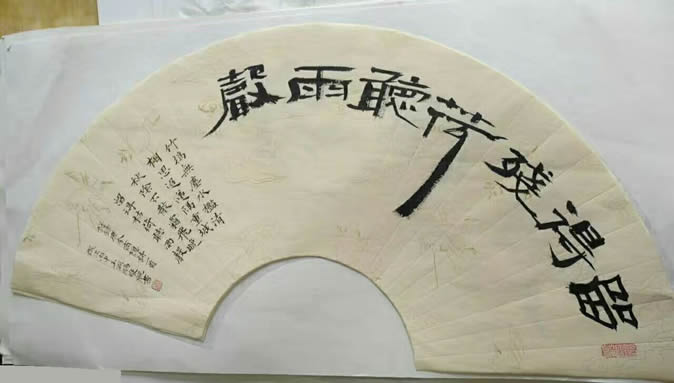 留得殘荷聽雨聲
竹塢無塵水檻清
相思迢遞隔重城
秋陰不散霜飛晚
留得枯荷聽雨聲
李商隱詩一首